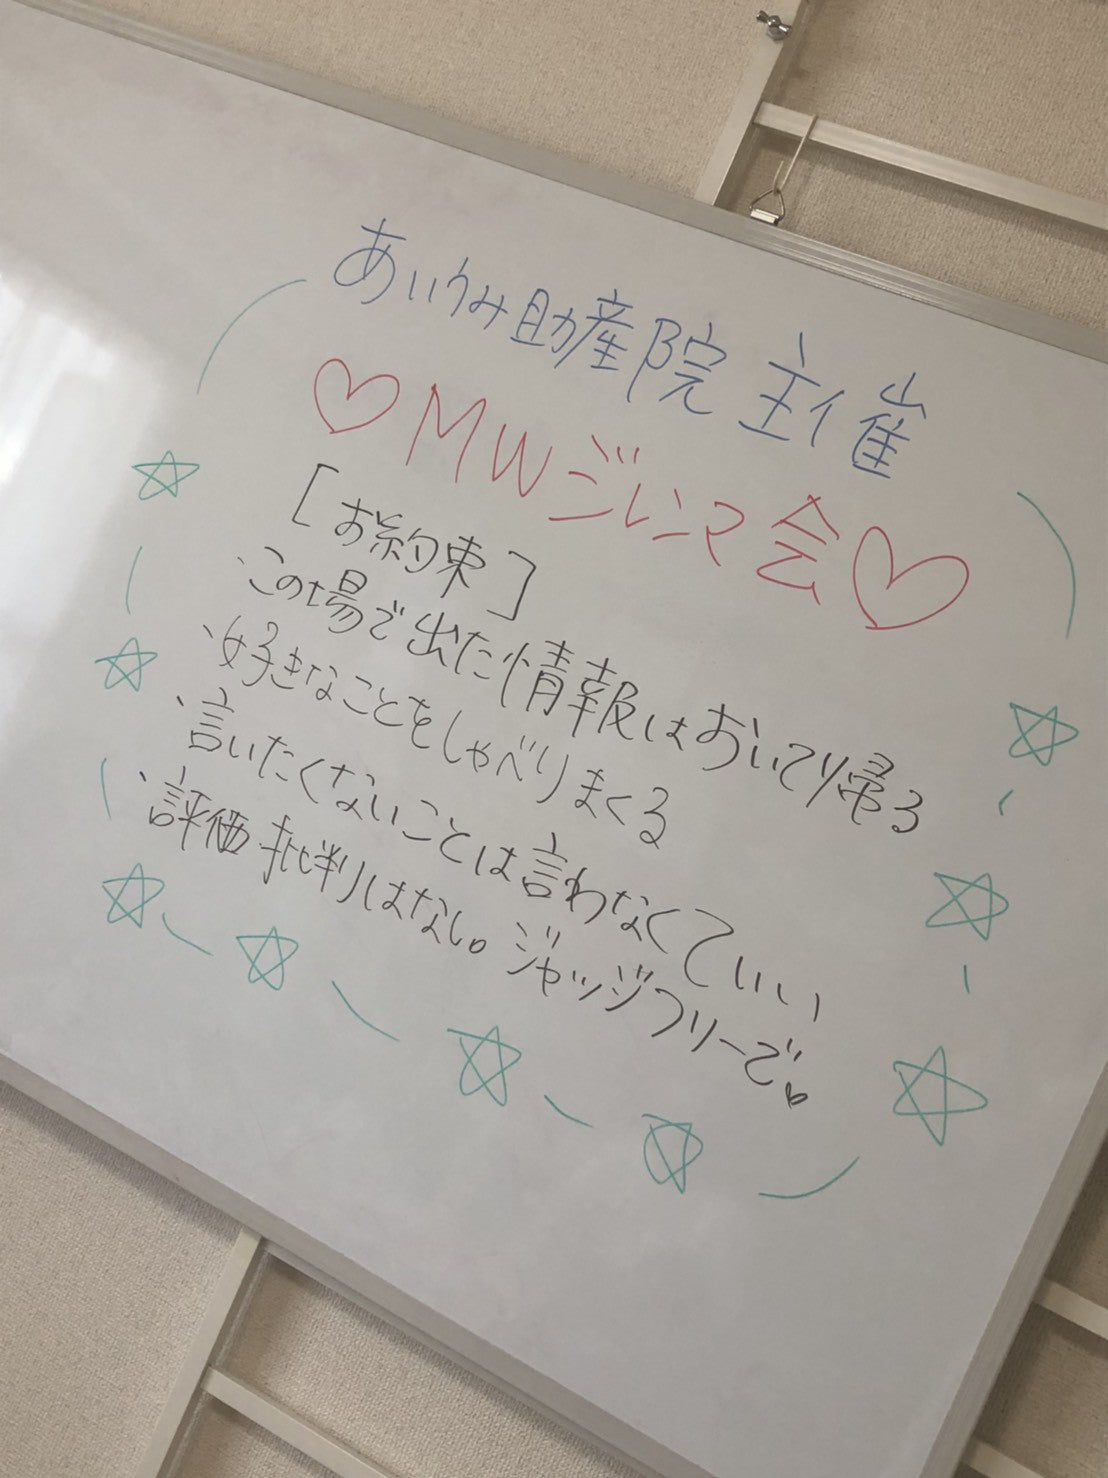 あいうみ助産院 主催
♡MWジレンマ会♡
[お約束]
、この場で出た情報はおいてり帰る
、好きなことをしゃべりまくる
、言いたくないことは言わなくていい
、評価 批判はない。ジャッジフリーで。